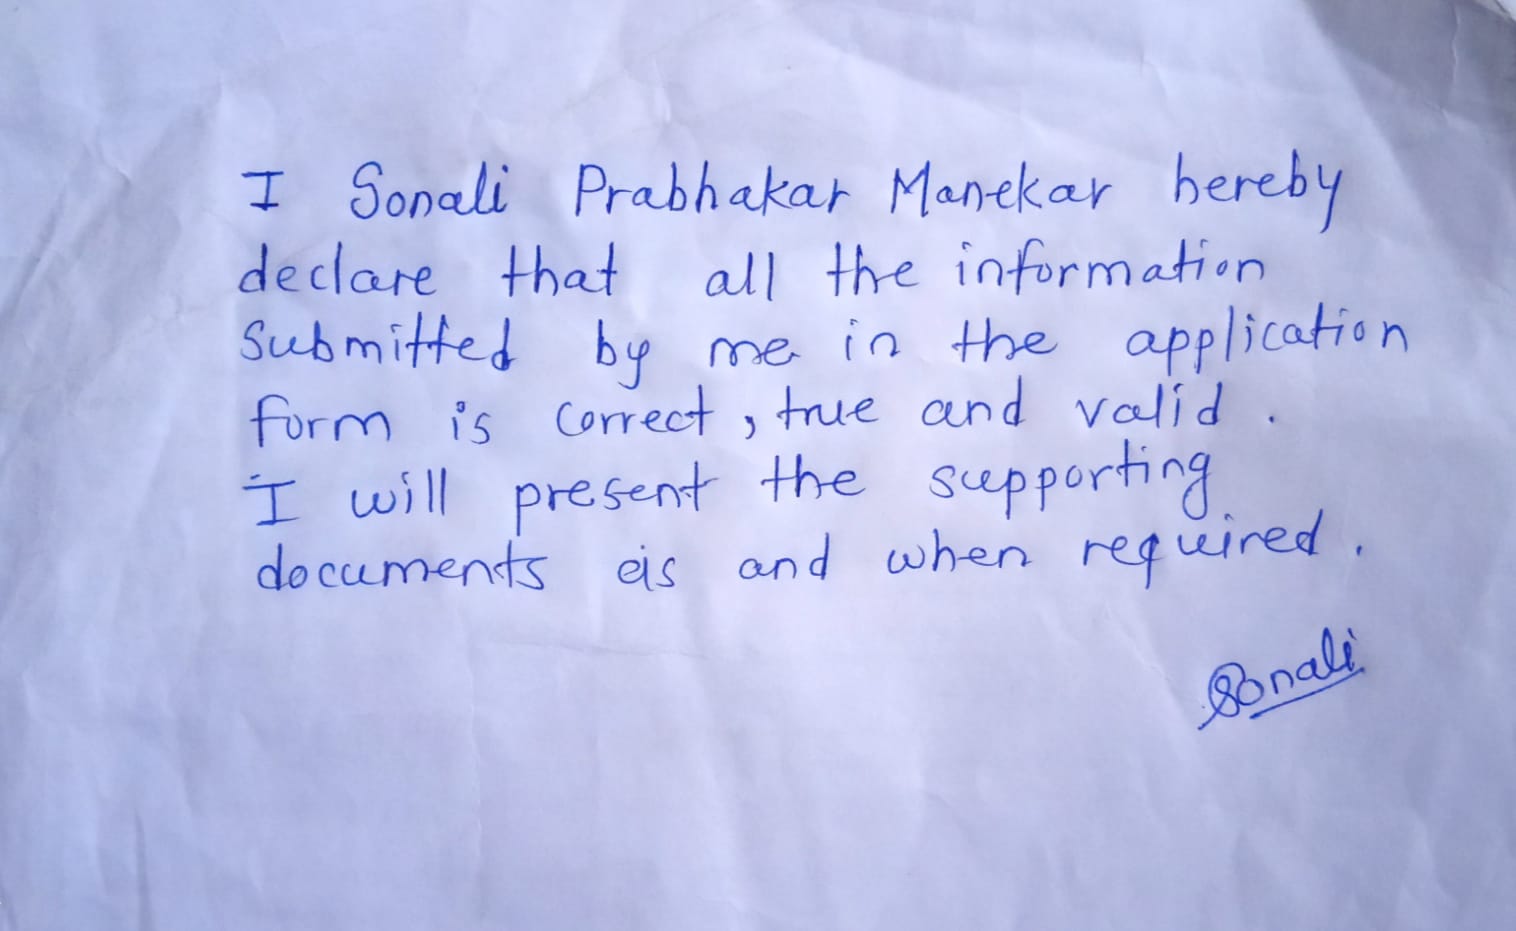 I Sonali Prabhakar Manekar hereby
declare that all the information
Submitted by me in the application
form is correct, true and valid.
I will present the supporting
documents as and when required.
Sonali